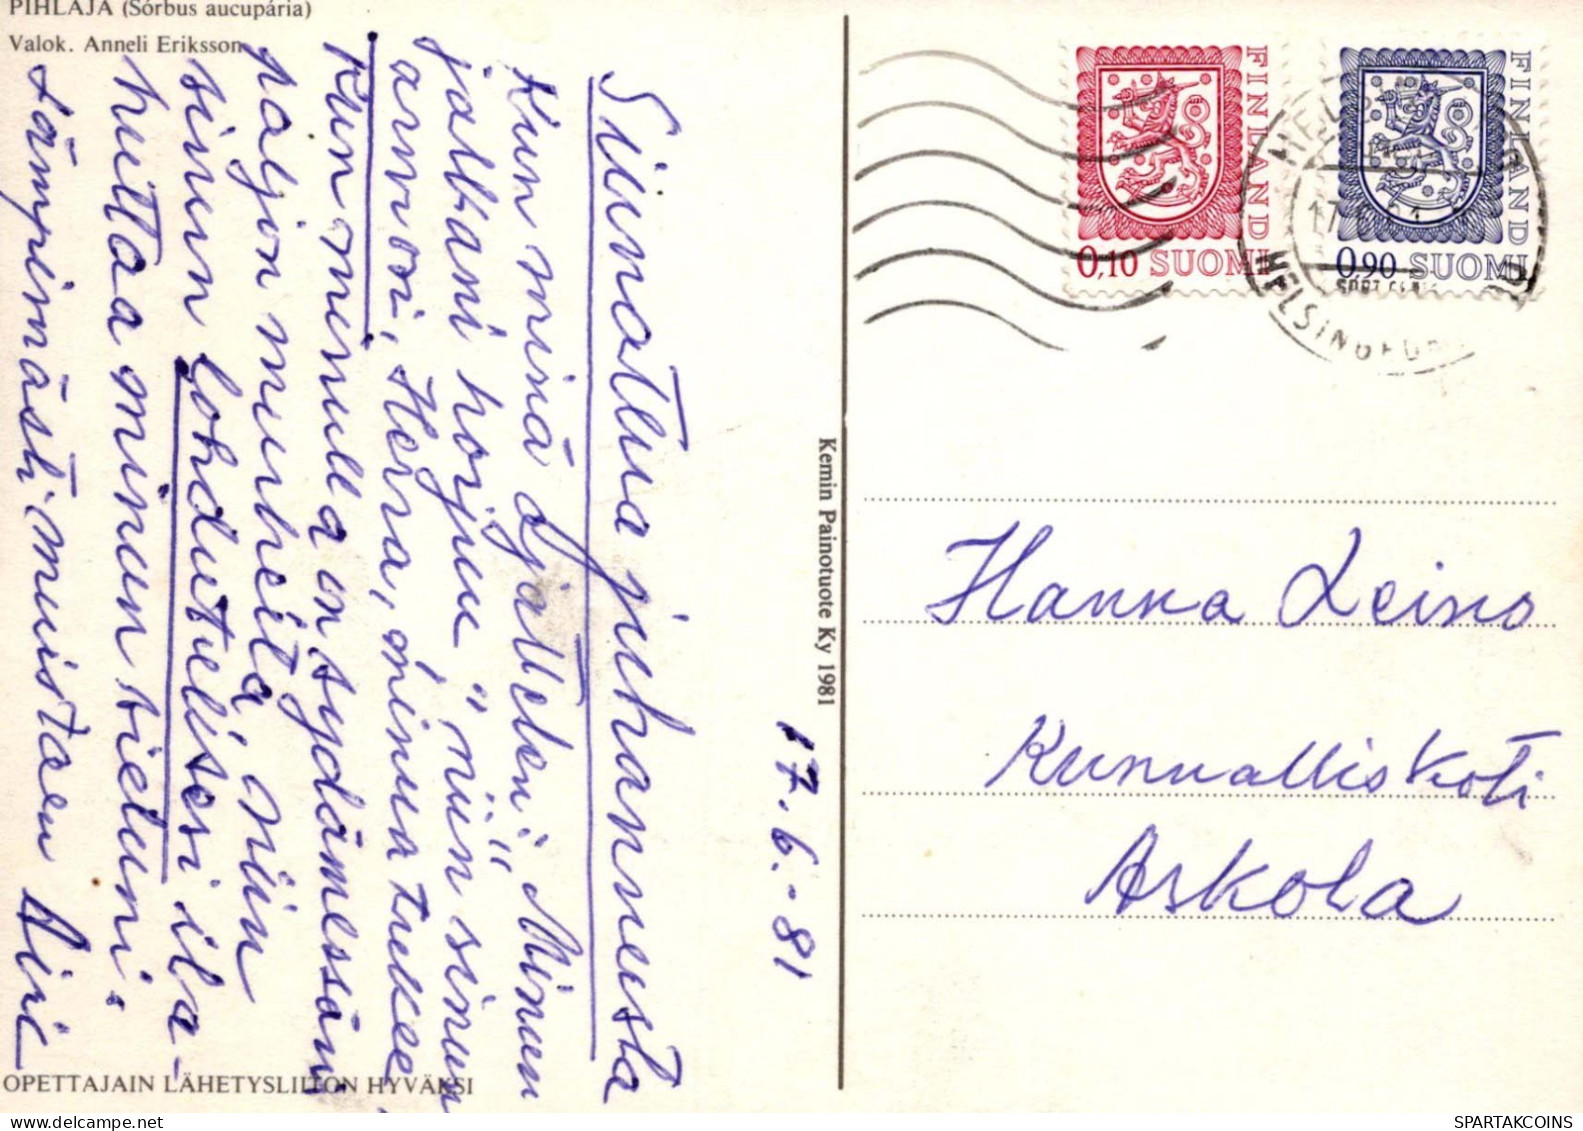 PIHLAJA (Sórbus aucupária)
Valok. Anneli Eriksson
Siunattua juhannusta
Kun minä ajattelen: "Minun
jalkani horjuu" niin sinun
armosi, Herra, minua tukee.
Kun minulla on sydämessäni
paljon murheita, niin
sinun lohdutuksesi ilah-
duttaa minun sieluni.
Lämpimästi muistaen
17.6.-81
OPETTAJAIN LÄHETYSLIITON HYVÄKSI
Kemin Painotuote Ky 1981
FINLAND
0,10 SUOMI
FINLAND
0,90 SUOMI
HELSINGFORS
Hanna Leino
Kunnalliskoti
Askola
SPARTAKCOINS